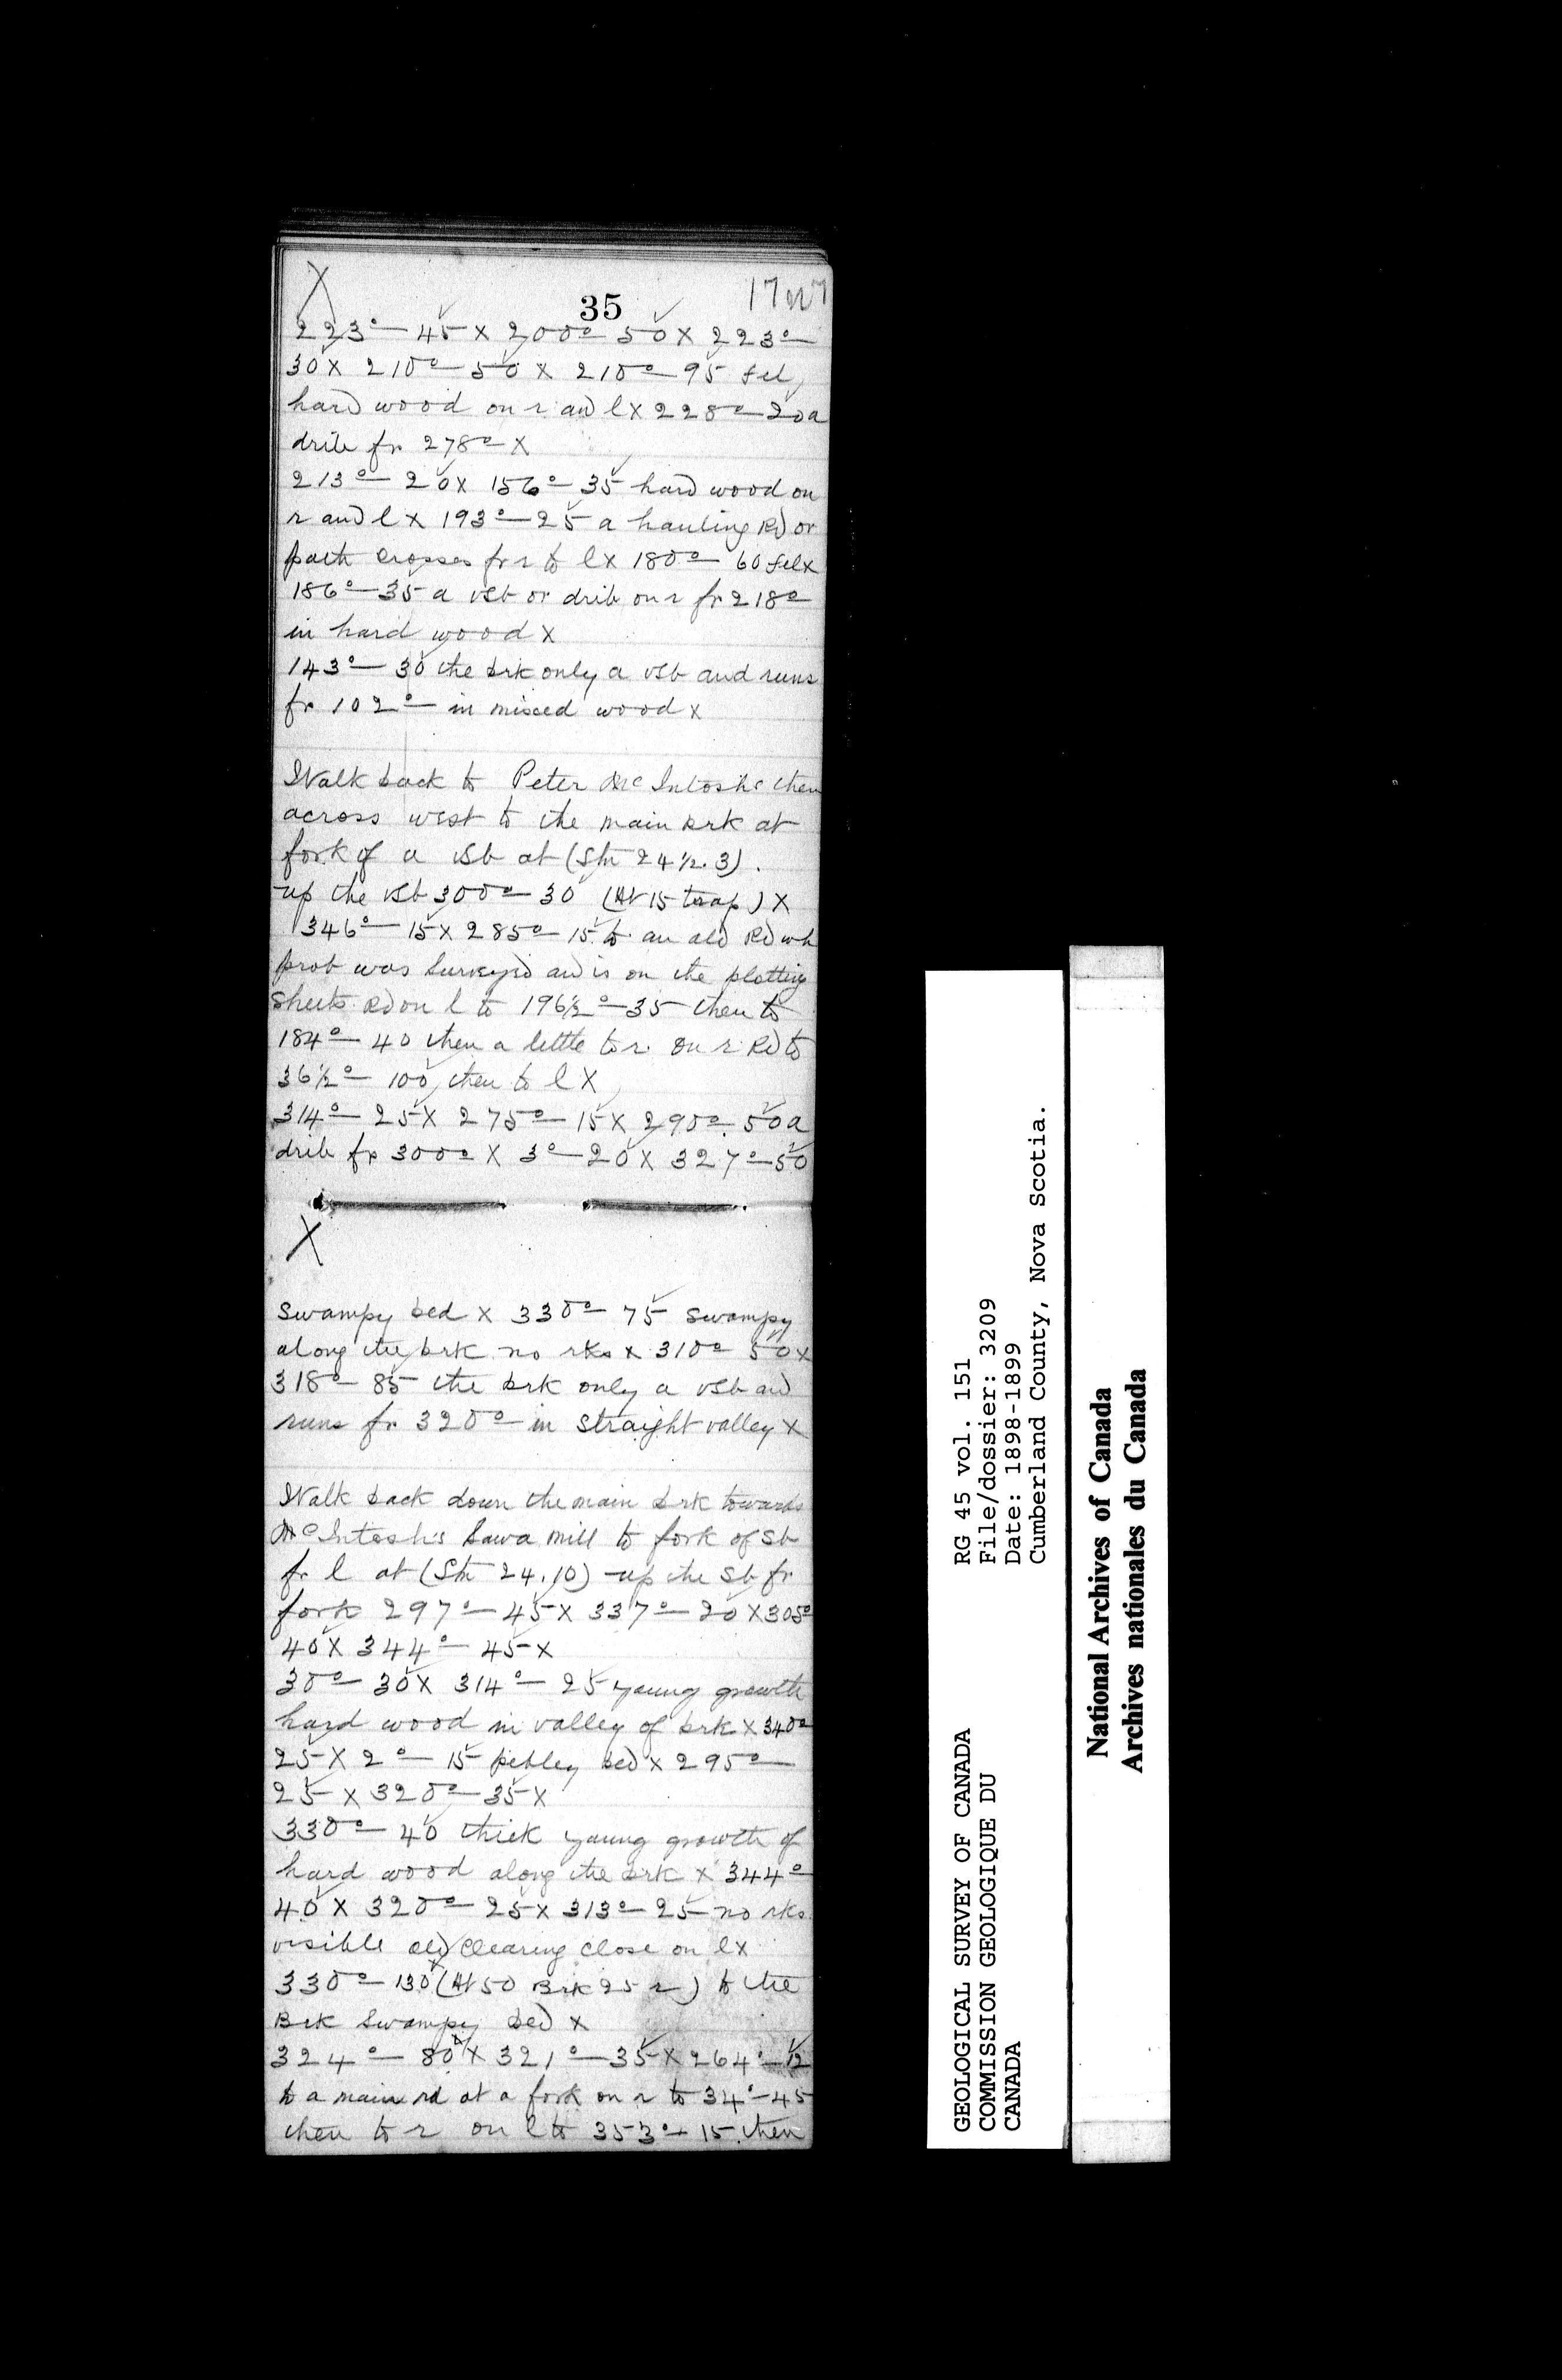 X
35
17
223°—45 X 200°—50 X 223°—
30 X 210°—50 X 210°—95 fel
hard wood on r and l X 228°—20 a
drib fr 278° X
213°—20 X 156°—35 hard wood on
r and l X 193°—25 a hauling Rd or
path crosses fr r to l X 180°—60 fel X
186°—35 a vsb or drib on r fr 218°
in hard wood X
143°—30 the brk only a vsb and runs
fr 102°— in mixed wood X
Walk back to Peter McIntosh's then
across west to the main brk at
fork of a vsb at (Stn 24½.3).
up the vsb 300°—30 (At 15 trap) X
346°—15 X 285°—15 to an old Rd wh
prob was surveyed and is on the plotting
sheets Rd on l to 196½°—35 then to
184°—40 then a little to r. On r Rd to
36½°—100 then to l X
314°—25 X 275°—15 X 290°—50 a
drib fr 300° X 3°—20 X 327°—50
X
swampy bed X 330°—75 swampy
along the brk no rks X 310°—50 X
318°—85 the brk only a vsb and
runs fr 320°— in straight valley X
Walk back down the main brk towards
McIntosh's Sawa mill to fork of sb
fr l at (Stn 24.10) up the sb fr
fork 297°—45 X 337°—20 X 305°
40 X 344°—45 X
30°—30 X 314°—25 young growth
hard wood in valley of brk X 340°
25 X 2°—15 pebley bed X 295°—
25 X 320°—35 X
330°—40 thick young growth of
hard wood along the brk X 344°
40 X 320°—25 X 313°—25 no rks
visible old clearing close on l X
330°—130 (At 50 Brk 25 r) to the
Brk swampy bed X
324°—80 X 321°—35 X 264°—12
to a main rd at a fork on r to 34°—45
then to r on l to 353°—15 then
GEOLOGICAL SURVEY OF CANADA
COMMISSION GEOLOGIQUE DU
CANADA
RG 45 vol. 151
File/dossier: 3209
Date: 1898-1899
Cumberland County, Nova Scotia.
National Archives of Canada
Archives nationales du Canada